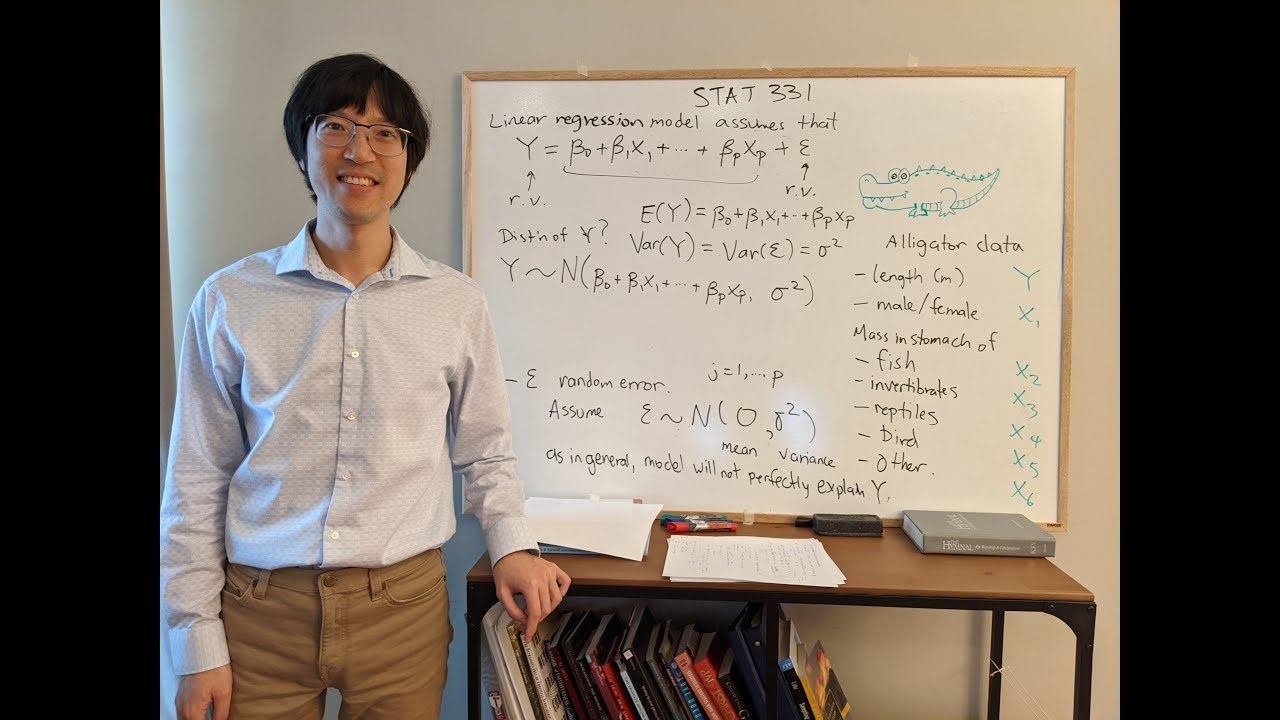 STAT 331
Linear regression model assumes that
Y = β₀+β₁X₁+ ⋯ + βₚXₚ + ε
↑ ↑
r.v. r.v.
E(Y) = β₀+β₁X₁+⋯+βₚXₚ
Dist'n of Y? Var(Y) = Var(ε) = σ²
Y ~ N(β₀+β₁X₁+⋯+βₚXₚ, σ²)
- ε random error. j=1,...p
Assume ε ~ N(0, σ²)
mean variance
as in general, model will not perfectly explain Y.
Alligator data
- length (m) Y
- male/female X₁
Mass in stomach of
- fish X₂
- invertibrates X₃
- reptiles X₄
- Bird X₅
- Other. X₆
HYMNAL